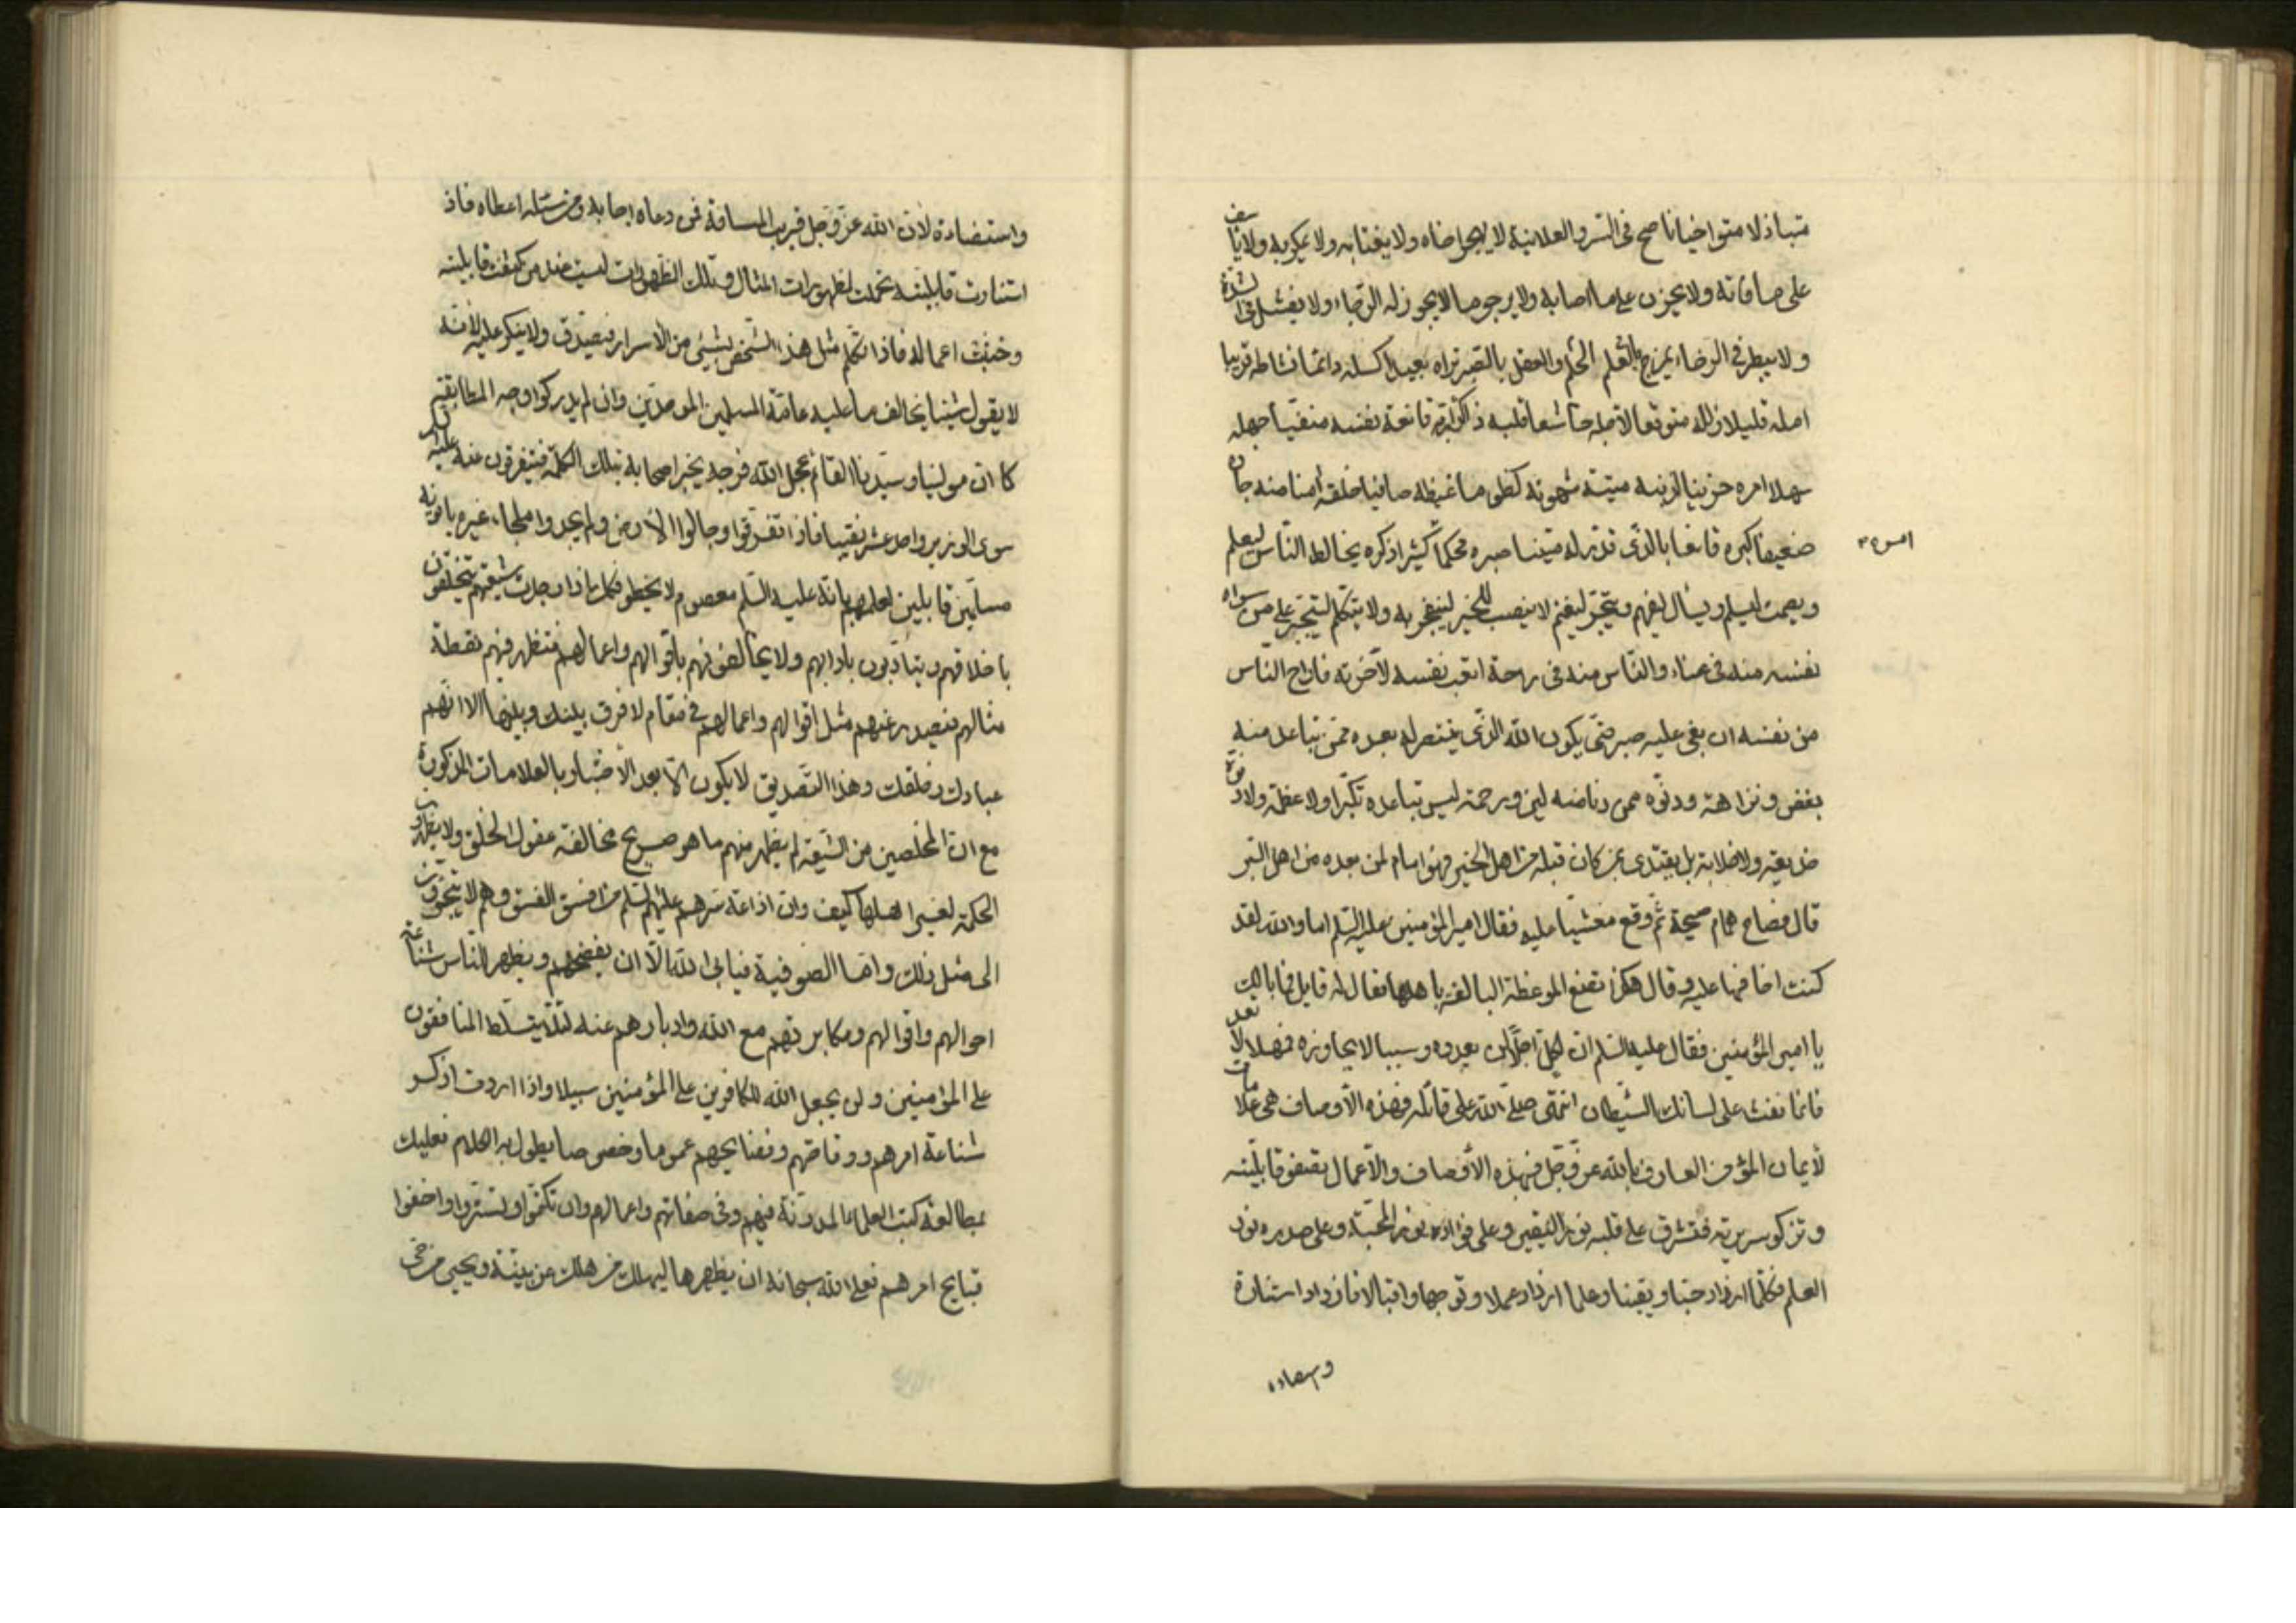 متباذلا متواخيا ناصح فى السر والعلانية لا يهجر اخاه ولا يغتابه ولا يمكر به ولا ياسف
على ما فاته ولا يحزن على ما اصابه ولا يرجو ما لا يجوز له الرجاء ولا يفشل فى الشدة
ولا يبطر فى الرخاء يمزج بالعلم الحلم والعقل بالصبر تراه بعيدا كسله دائما نشاطه قريبا
امله قليلا زلله متوقعا لاجله خاشعا قلبه ذاكرا ربه قانعة نفسه منفيا جهله
سهلا امره حزينا لذنبه ميتة شهوته كظوما غيظه صافيا خلقه امنا منه جاره
ضعيفا كبره قانعا بالذى قدر له متينا صبره محكما كثيرا ذكره يخالط الناس ليعلم
امره
ويصمت ليسلم ويسأل ليفهم ويتجر ليغنم لا ينصب للخير ليفخر به ولا يتكلم ليتجبر على من سواه
نفسه منه فى عناء والناس منه فى راحة اتعب نفسه لآخرته فاراح الناس
من نفسه ان بغى عليه صبر حتى يكون الله الذى ينتصر له بعده ممن تباعد منه
بغض ونزاهة ودنوه ممن دنا منه لين ورحمة ليس تباعده تكبرا ولا عظمة ولا دنوه
خديعة ولا خلابة بل يقتدى بمن كان قبله من اهل الخير فهو امام لمن بعده من اهل البر
قال فصاح همام صيحة ثم وقع مغشيا عليه فقال امير المؤمنين عليه السلم اما والله لقد
كنت اخافها عليه وقال هكذا تصنع الموعظة البالغة باهلها فقال له قايل فما بالك
يا امير المؤمنين فقال عليه السلم ان لكل اجلا لن يعدوه وسببا لا يجاوزه فمهلا لا تعد
فانما نفث على لسانك الشيطان انتهى صلى الله على قائله فهذه الاوصاف هى علامات
لأيمان المؤمن العارف بالله عز وجل فبهذه الأوصاف والأعمال تصفو قابليته
وتزكو سريرته فتشرق على قلبه نور اليقين وعلى فؤاده نور المحبة وعلى صدره نور
العلم فكلما ازداد حبا ويقينا وعلما ازداد عملا وتوجها واقبالا فازداد استنارة
واستضاءة
واستضاءة لأن الله عز وجل قريب المسافة فمن دعاه اجابه ومن سئله اعطاه فاذا
استنارت قابليته تحملت لظهورات المثال وتلك الظهورات ليست عند من كثفت قابليته
وخبثت اعماله فاذا تكلم مثل هذا الشخص بشىء من الأسرار فيصدق ولا ينكر عليه لأنه
لا يقول شيئا يخالف ما عليه عامة المسلمين الموحدين وان لم يدركوا وجه المطابقة
كما ان مولينا وسيدنا القائم عجل الله فرجه يخبر اصحابه بتلك الكلمة فيتفرقون عنه
سوى الوزير واحد عشر نقيبا فاذا تفرقوا وجالوا الأرض ولم يجدوا ملجاء غيره يأتونه
مسلمين قابلين لعلمهم بانه عليه السلم معصوم لا يخطو فكل ماذا وجدت شيعتهم يتخلقون
باخلاقهم ويتأدبون بادابهم ولا يخالفونهم باقوالهم واعمالهم فتظهر فيهم نقطة
مثالهم فيصدر عنهم مثل اقوالهم واعمالهم فى مقام لا فرق بينك وبينها الا انهم
عبادك وخلقك وهذا التصديق لا يكون الا بعد الأختبار بالعلامات المذكورة
مع ان المخلصين من الشيعة لم يظهر منهم ما هو صريح مخالفة عقول الخلق ولا يظهرون
الحكمة لغير اهلها كيف وان اذاعة سرهم عليهم السلم من افسق الفسق وهم لا
الى مثل ذلك واما الصوفية فيابى الله الا ان يفضحهم ويظهر للناس شناعة
احوالهم واقوالهم ومكابرتهم مع الله وادبارهم عنه لئلا يتسلط المنافقون
على المؤمنين ولن يجعل الله للكافرين على المؤمنين سبيلا واذا اردت اذكر
شناعة امرهم ووقاحتهم وفضايحهم عموما وخصوصا يطول به الكلام فعليك
بمطالعة كتب العلماء المدونة فيهم وفى صفاتهم واعمالهم وان تكتموا وتستروا واخفوا
قبايح امرهم فعلى الله سبحانه ان يظهرها ليهلك من هلك عن بينة ويحيى من حى